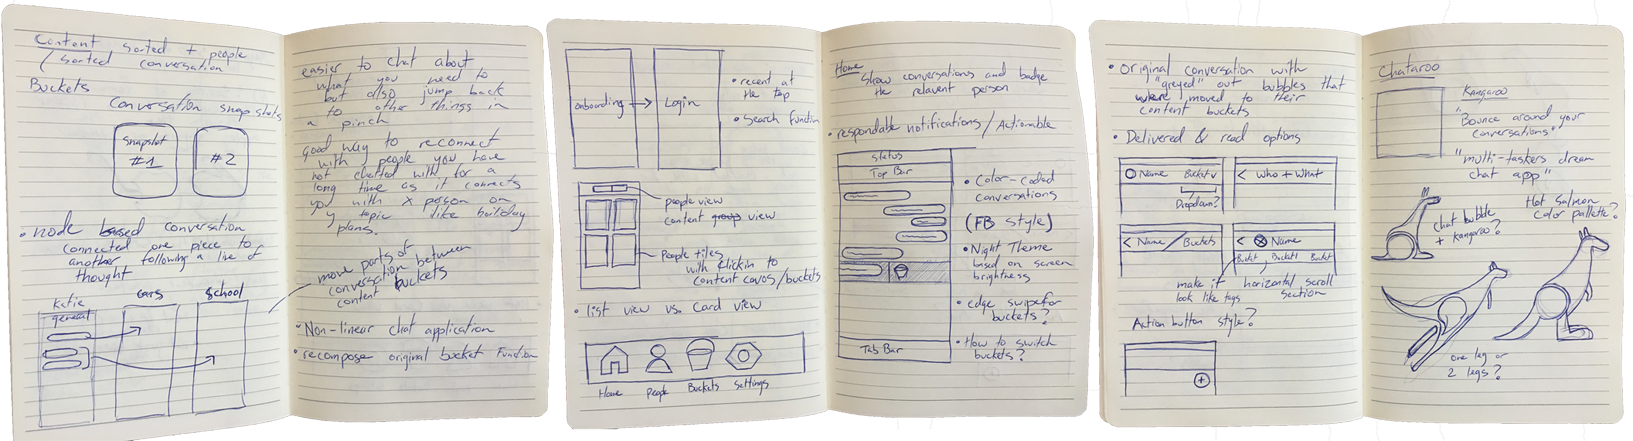 Content sorted + people
/ sorted conversation
Buckets
Conversation snapshots
Snapshot
#1
#2
• node based conversation
connected one piece to
another following a line of
thought
Katie
general
cars
school
easier to chat about
what you need to
but also jump back
to other things in
a pinch
good way to reconnect
with people you have
not chatted with for a
long time as it connects
you with x person on
y topic like holiday
plans.
move parts of
conversation between
content buckets
• Non-linear chat application
• recompose original bucket function
onboarding
Login
• recent at
the top
• Search Function
people view
content group view
People tiles
with
to
content convos/buckets
• list view vs. Card view
Home
People
Buckets
Settings
Home
Show conversations and badge
the relavent person
• respondable notifications / Actionable
Status
Top Bar
Tab Bar
• Color-coded
conversations
(FB style)
• Night Theme
based on screen
brightness
• edge swipe for
buckets?
• How to switch
buckets?
• original conversation with
"greyed" out bubbles that
were moved to their
content buckets
• Delivered & read options
Name Bucket v
Dropdown?
< Who + What
< Name / Buckets
< Name
Bucket Bucket Bucket
make it horizontal scroll
look like tags section
Action button style?
+
Chataroo
Kangaroo
"Bounce around your
conversations"
"multi-taskers dream
chat app"
chat bubble
+ kangaroo?
Hot Salmon
color pallette?
one leg or
2 legs?